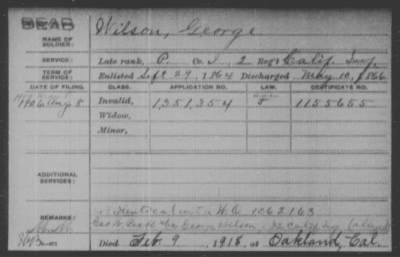 DEAD
NAME OF SOLDIER: Wilson, George
SERVICE: Late rank, P. Co. I, 2 Reg't Calif. Inf.
TERM OF SERVICE: Enlisted Sept. 29, 1864 Discharged May 10, 1866
DATE OF FILING. CLASS. APPLICATION NO. LAW. CERTIFICATE NO.
1906 Aug 8 Invalid, 1,351,354 1155655
Widow,
Minor,
ADDITIONAL SERVICES:
REMARKS: Identical with W.O. 1062163
George Wilson
Died Feb. 9, 1918, at Oakland, Cal.